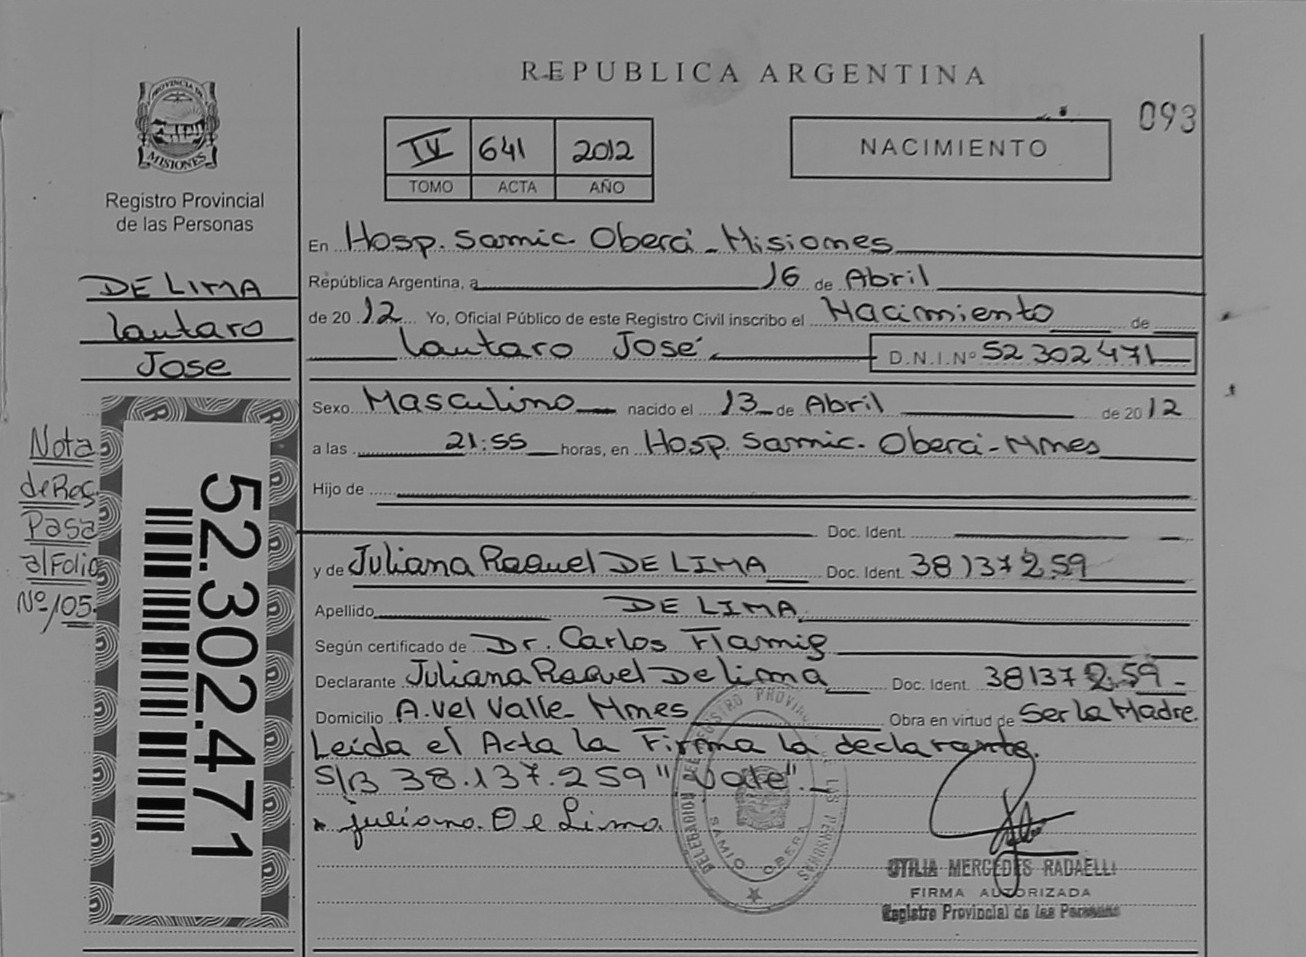 REPUBLICA ARGENTINA
093
PROVINCIA DE MISIONES
Registro Provincial
de las Personas
IV 641 2012
TOMO ACTA AÑO
NACIMIENTO
DE LIMA
Lautaro
Jose
Nota
de Rec.
Pasa
al Folio
Nº 105.
52.302.471
En Hosp. Samic. Oberá - Misiones
República Argentina, a 16 de Abril
de 2012 Yo, Oficial Público de este Registro Civil inscribo el Nacimiento de
Lautaro José. D.N.I.Nº 52 302 471
Sexo Masculino nacido el 13 de Abril de 2012
a las 21:55 horas, en Hosp. Samic. Oberá - Mnes
Hijo de
Doc. Ident.
y de Juliana Raquel DE LIMA Doc. Ident. 38137259
Apellido DE LIMA
Según certificado de Dr. Carlos Flamig
Declarante Juliana Raquel De Lima Doc. Ident. 38137259
Domicilio A. del Valle - Mnes Obra en virtud de Ser la Madre.
Leída el Acta la Firma la declarante.
S/B 38.137.259 "Vale".
Juliana De Lima
DELEGACION DEL REGISTRO PROVINCIAL DE LAS PERSONAS
SAMIC OBERA
OTILIA MERCEDES RADAELLI
FIRMA AUTORIZADA
Registro Provincial de las Personas